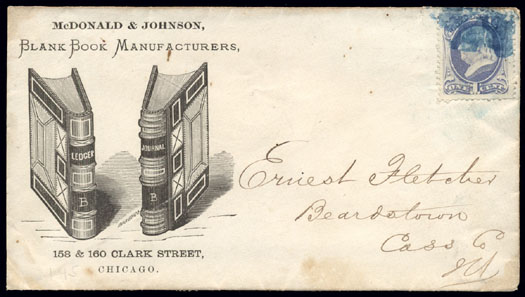 McDONALD & JOHNSON,
BLANK BOOK MANUFACTURERS,
LEDGER
B
JOURNAL
B
158 & 160 CLARK STREET,
CHICAGO.
Ernest Fletcher
Beardstown
Cass Co
Ill